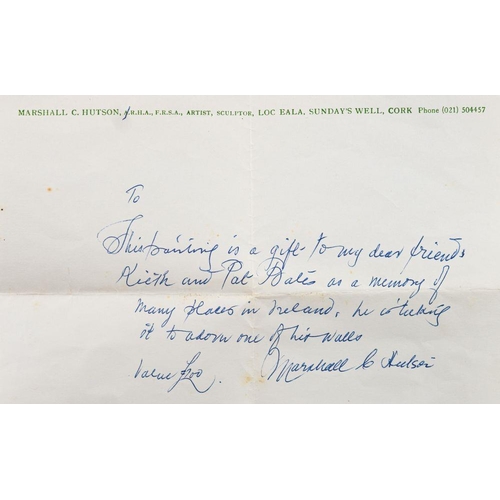 MARSHALL C. HUTSON, R.H.A., F.R.S.A., ARTIST, SCULPTOR, LOC EALA, SUNDAY'S WELL, CORK Phone (021) 504457
To
This painting is a gift to my dear friends
Kieth and Pat Bates as a memory of
many places in Ireland, he is taking
it to adorn one of his walls
Value
Marshall C Hutson